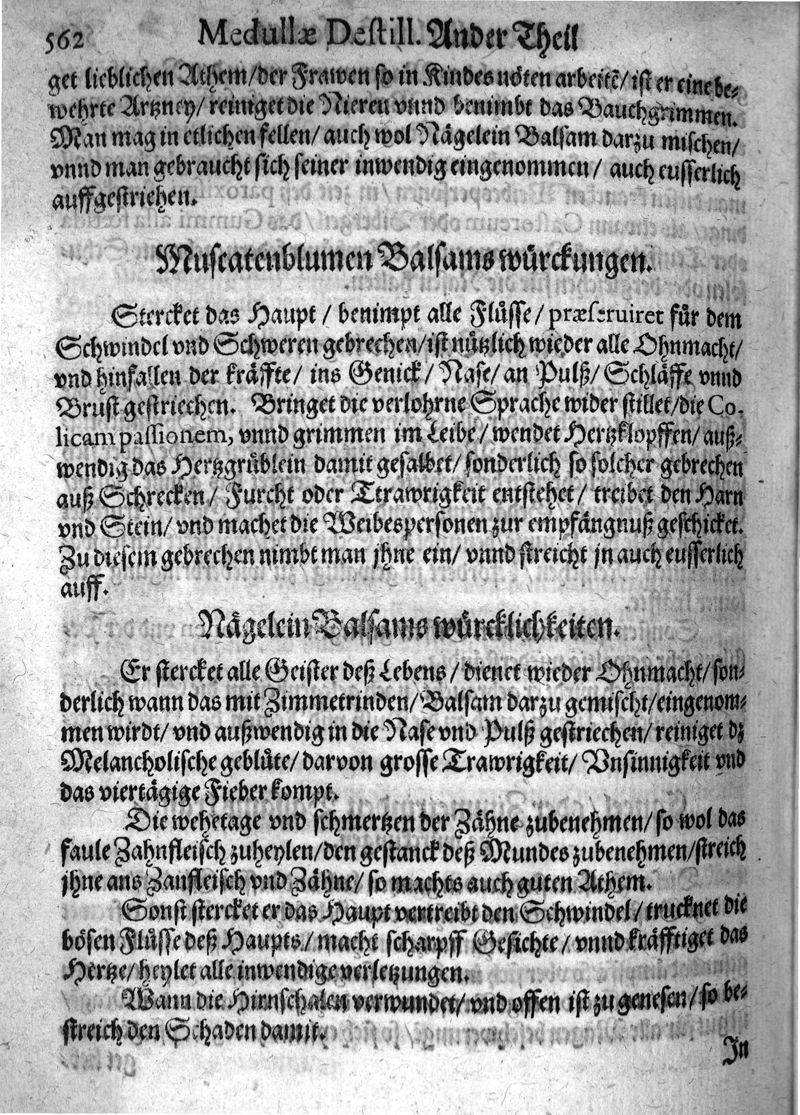 562 Medullæ Destill. Ander Theil
get lieblichen Athem/der Frawen so in Kindes nöten arbeitẽ/ ist er eine be-
wehrte Artzney/ reiniget die Nieren vnnd benimbt das Bauchgrimmen.
Man mag in etlichen fellen/ auch wol Nägelein Balsam darzu mischen/
vnnd man gebraucht sich seiner inwendig eingenommen/ auch eusserlich
auffgestriehen.
Muscatenblumen Balsams würckungen.
Stercket das Haupt / benimpt alle Flüsse/ præseruiret für dem
Schwindel vnd Schweren gebrechen/ist nützlich wieder alle Ohnmacht/
vnd hinfallen der kräffte/ ins Genick/ Nase/ an Pulß/ Schläffe vnnd
Brust gestriechen. Bringet die verlohrne Sprache wider stillet/die Co-
licam passionem, vnnd grimmen im Leibe/ wendet Hertzklopffen/ auß-
wendig das Hertzgrüblein damit gesalbet/ sonderlich so solcher gebrechen
auß Schrecken/ Furcht oder Ttrawrigkeit entstehet/ treibet den Harn
vnd Stein/ vnd machet die Weibespersonen zur empfängnuß geschicket.
Zu diesem gebrechen nimbt man jhne ein/ vnnd streicht jn auch eusserlich
auff.
Nägelein Balsams würcklichkeiten.
Er stercket alle Geister deß Lebens / dienet wieder Ohnmacht/ son-
derlich wann das mit Zimmetrinden/ Balsam darzu gemischt/eingenom-
men wirdt/ vnd außwendig in die Nase vnd Pulß gestriechen/ reiniget dz
Melancholische geblüte/ darvon grosse Trawrigkeit/ Vnsinnigkeit vnd
das viertägige Fieber kompt.
Die wehetage vnd schmertzen der Zähne zubenehmen/ so wol das
faule Zahnfleisch zuheylen/den gestanck deß Mundes zubenehmen/streich
jhne ans Zanfleisch vnd Zähne/ so machts auch guten Athem.
Sonst stercket er das Haupt vertreibt den Schwindel/ trucknet die
bösen Flüsse deß Haupts/ macht scharpff Gesichte/ vnnd kräfftiget das
Hertze/ heylet alle inwendige verletzungen.
Wann die Hirnschalen verwundet/ vnd offen ist zu genesen/ so be-
streich den Schaden damit.
In